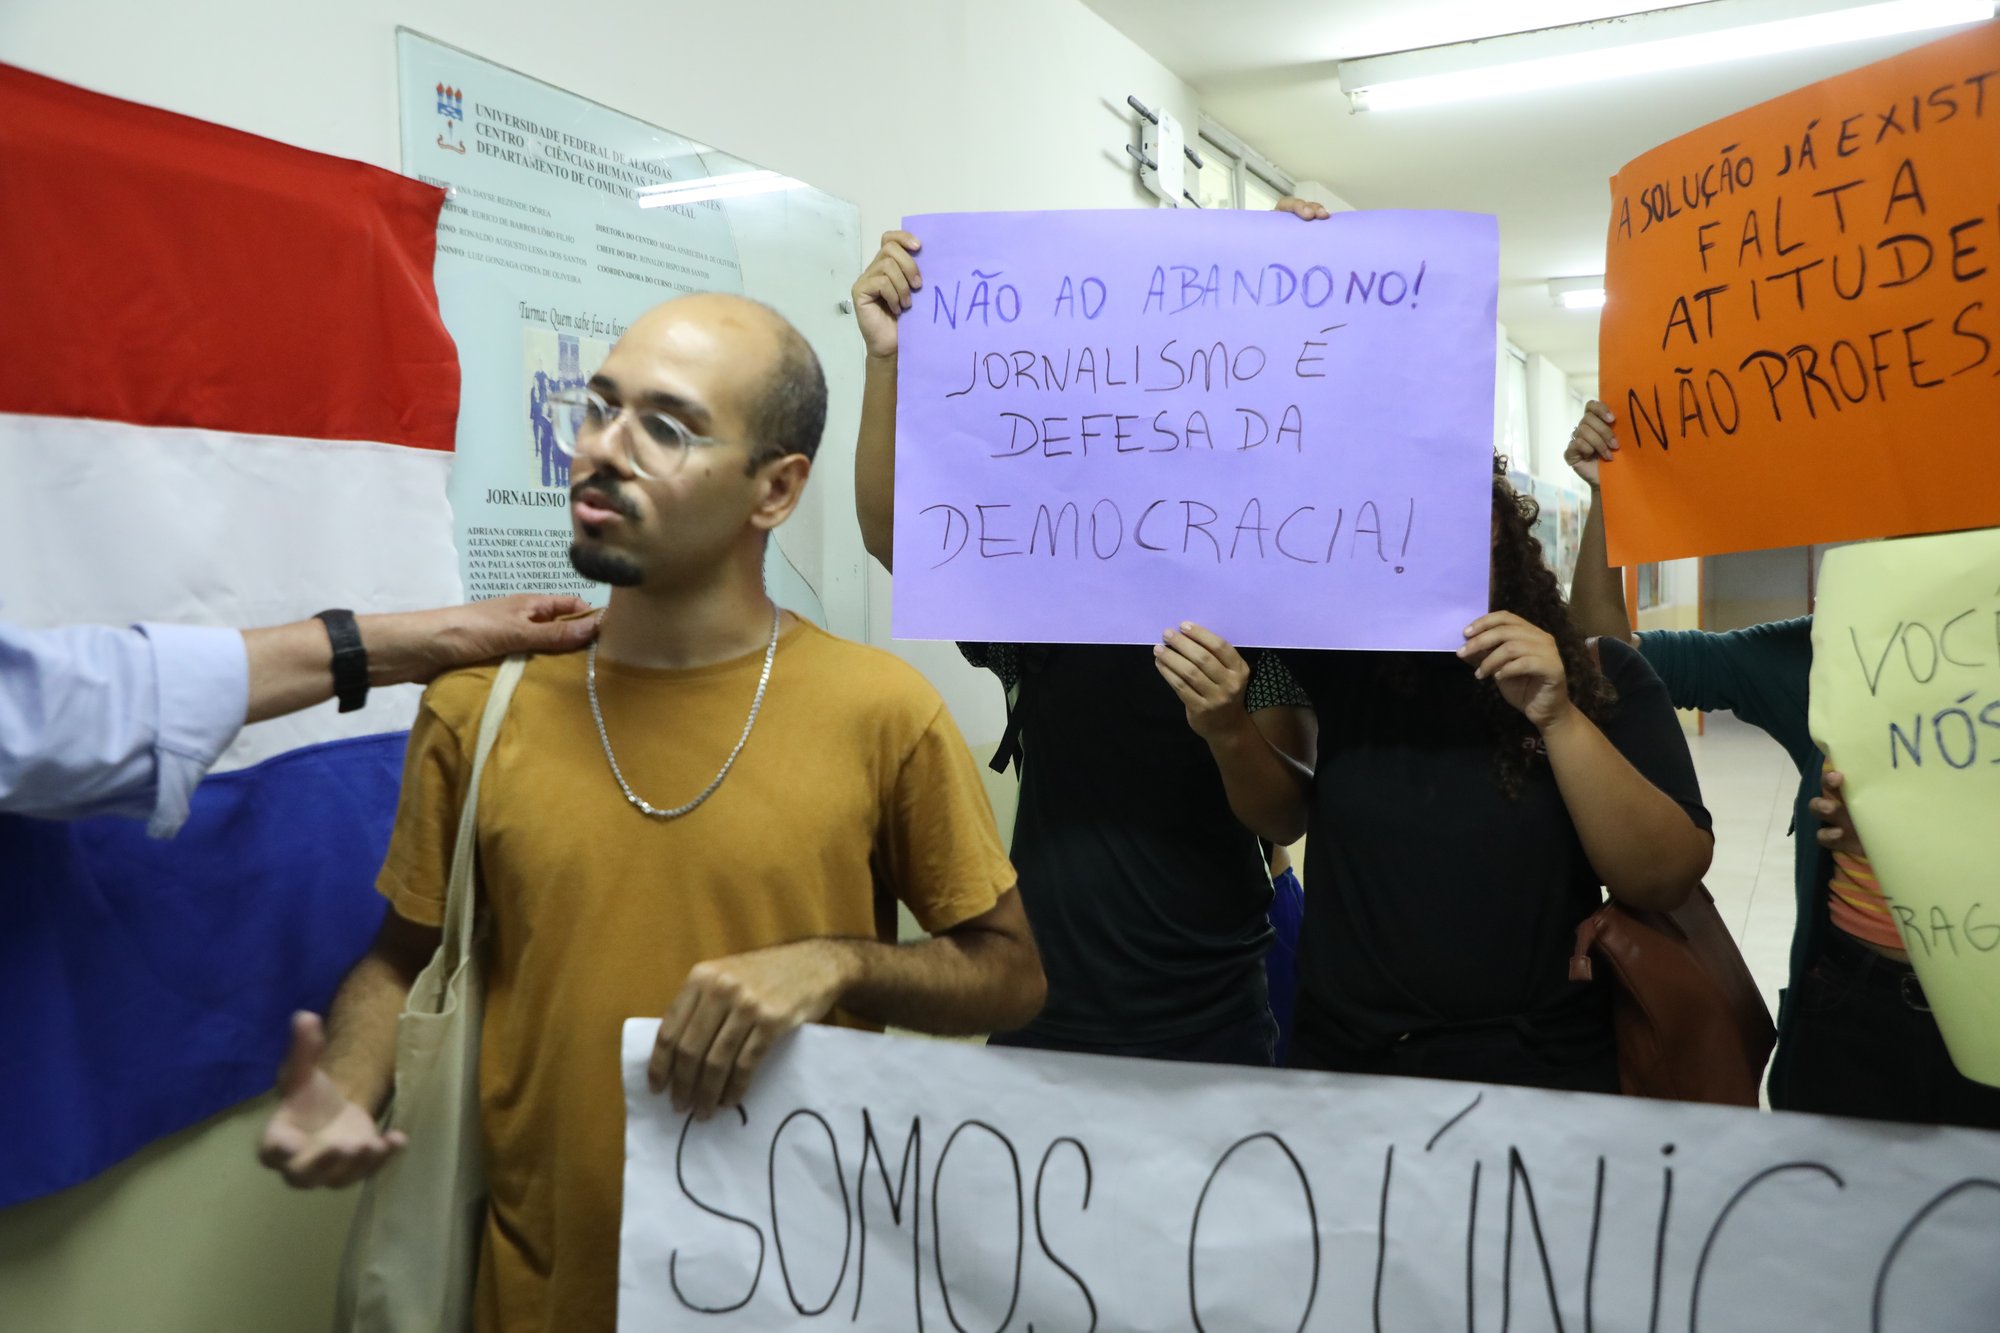 UNIVERSIDADE FEDERAL DE ALAGOAS
CENTRO CIÊNCIAS HUMANAS,
DEPARTAMENTO DE SOCIAL
ANA DAYSE REZENDE DÓREA
EURICO DE BARROS LÔBO FILHO
RONALDO AUGUSTO LESSA DOS SANTOS
LUIZ GONZAGA COSTA DE OLIVEIRA
DIRETORA DO CENTRO: MARIA APARECIDA B. DE OLIVEIRA
CHEFE DO DEP.: RONALDO BISPO DOS SANTOS
COORDENADORA DO CURSO:
Turma: Quem sabe faz a hora
JORNALISMO
ADRIANA CORREIA
ALEXANDRE CAVALCANTI
AMANDA SANTOS DE
ANA PAULA SANTOS
ANA PAULA VANDERLEI
ANAMARIA CARNEIRO SANTIAGO
NÃO AO ABANDONO!
JORNALISMO É
DEFESA DA
DEMOCRACIA!
A SOLUÇÃO JÁ EXIST
FALTA
ATITUDE
NÃO PROFES
VOCÊ
NÓS
RAG
SOMOS O ÚNICO